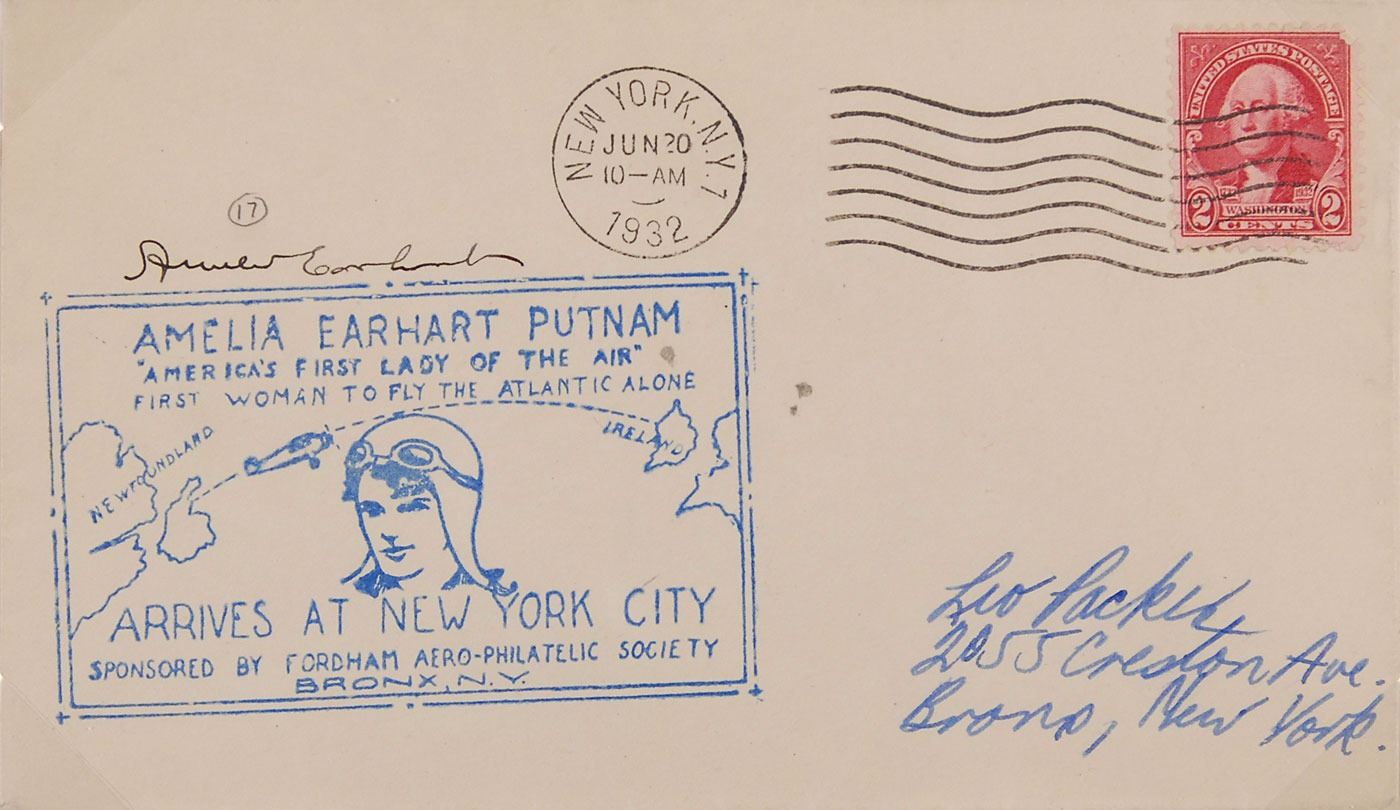 UNITED STATES POSTAGE
1732 1932
WASHINGTON
2 CENTS 2
NEW YORK, N.Y. 1
JUN 20
10-AM
1932
17
Amelia Earhart
AMELIA EARHART PUTNAM
"AMERICA'S FIRST LADY OF THE AIR"
FIRST WOMAN TO FLY THE ATLANTIC ALONE
NEWFOUNDLAND
IRELAND
ARRIVES AT NEW YORK CITY
SPONSORED BY FORDHAM AERO-PHILATELIC SOCIETY
BRONX, N.Y.
Leo Packer,
2055 Creston Ave.
Bronx, New York.